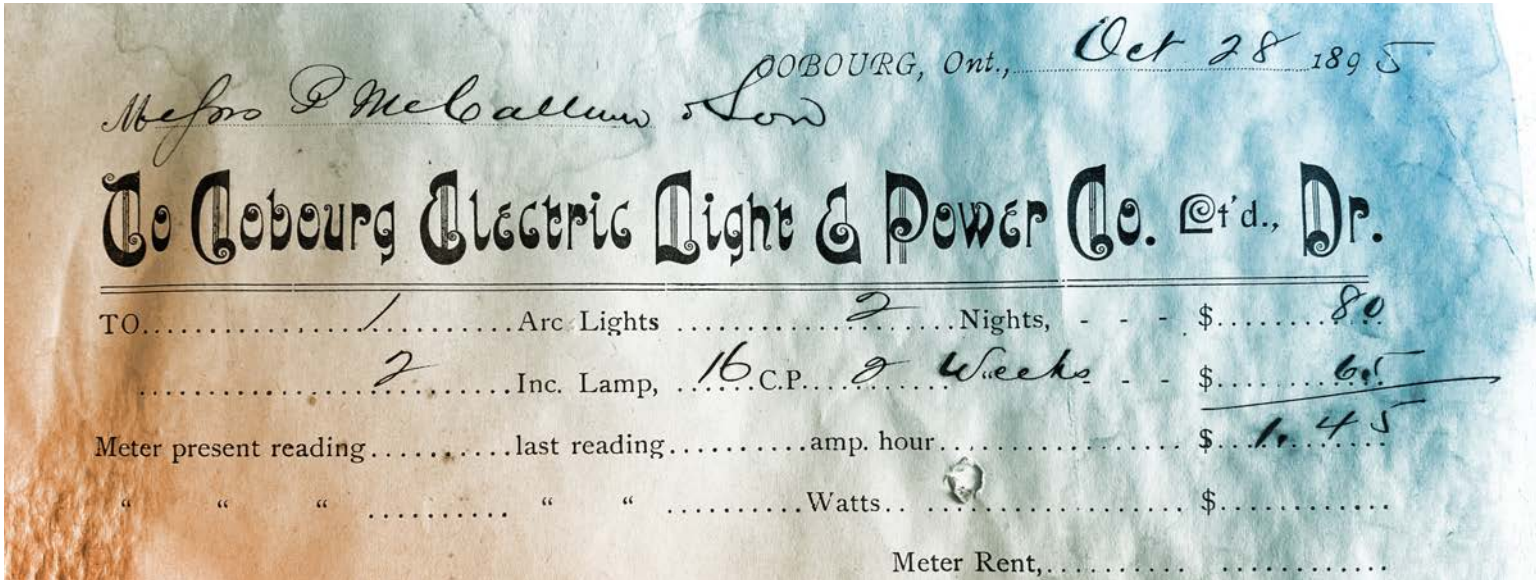 COBOURG, Ont., Oct 28 1895
Messrs P McCallum & Son
To Cobourg Electric Light & Power Co. Lt'd., Dr.
TO..............1..........Arc Lights ............2........Nights, - - - $........80
....................2..........Inc. Lamp, ..16..C.P....2.. Weeks - - $........65
Meter present reading..........last reading..........amp. hour.................. $..1.45
“ “ “ .......... “ “ ..........Watts.. .................. $.............
Meter Rent,........... ............